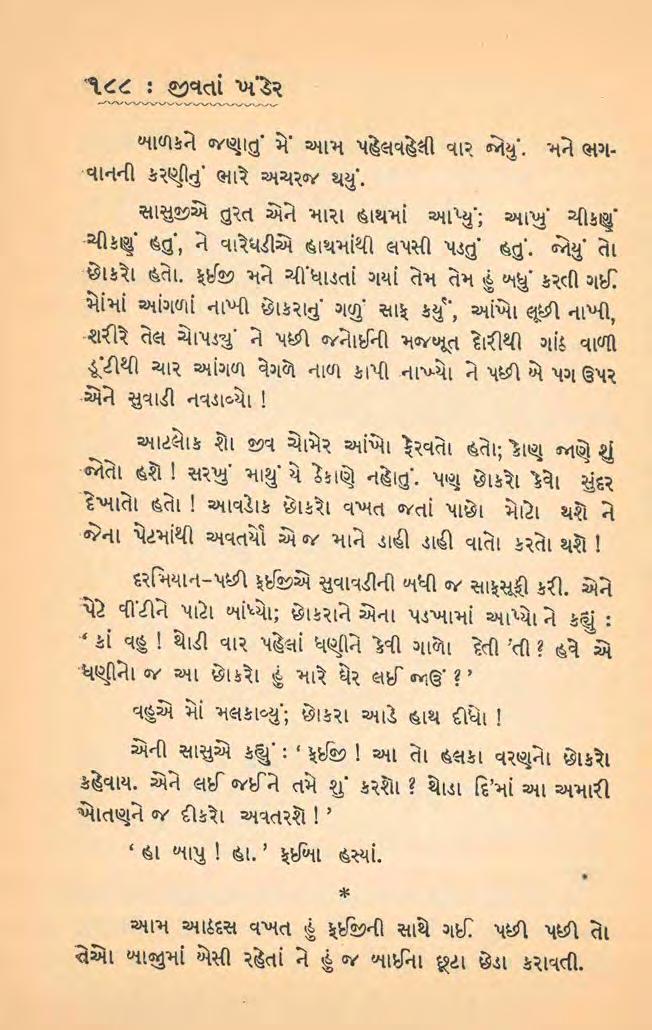 ૧૮૮ : જીવતાં ખંડેર
બાળકને જણાતું મેં આમ પહેલવહેલી વાર જોયું. મને ભગ-
વાનની કરણીનું ભારે અચરજ થયું.
સાસુજીએ તુરત એને મારા હાથમાં આપ્યું; આખું ચીકણું
ચીકણું હતું, ને વારેઘડીએ હાથમાંથી લપસી પડતું હતું. જોયું તો
છોકરો હતો. ફઈજી મને ચીંધાડતાં ગયાં તેમ તેમ હું બધું કરતી ગઈ.
મોંમાં આંગળાં નાખી છોકરાનું ગળું સાફ કર્યું, આંખો લૂછી નાખી,
શરીરે તેલ ચોપડ્યું ને પછી જનોઈની મજબૂત દોરીથી ગાંઠ વાળી
ડૂંટીથી ચાર આંગળ વેગળે નાળ કાપી નાખ્યો ને પછી બે પગ ઉપર
એને સુવાડી નવડાવ્યો !
આટલોક શો જીવ ચોમેર આંખો ફેરવતો હતો; કોણ જાણે શું
જોતો હશે ! સરખું માથું યે ઠેકાણે નહોતું. પણ છોકરો કેવો સુંદર
દેખાતો હતો ! આવડોક છોકરો વખત જતાં પાછો મોટો થશે ને
જેના પેટમાંથી અવતર્યો એ જ માને ડાહી ડાહી વાતો કરતો થશે !
દરમિયાન-પછી ફઈજીએ સુવાવડીની બધી જ સાફસૂફી કરી. એને
પેટે વીંટીને પાટો બાંધ્યો; છોકરાને એના પડખામાં આપ્યો ને કહ્યું :
‘ કાં વહુ ! થોડી વાર પહેલાં ધણીને કેવી ગાળો દેતી ’તી ? હવે એ
ધણીનો જ આ છોકરો હું મારે ઘેર લઈ જાઉં ? ’
વહુએ મોં મલકાવ્યું; છોકરા આડે હાથ દીધો !
એની સાસુએ કહ્યું : ‘ ફઈજી ! આ તો હલકા વરણનો છોકરો
કહેવાય. એને લઈ જઈને તમે શું કરશો ? થોડા દિ’માં આ અમારી
ઓતણને જ દીકરો અવતરશે ! ’
‘ હા બાપુ ! હા. ’ ફઈબા હસ્યાં.
*
આમ આઠદસ વખત હું ફઈજીની સાથે ગઈ. પછી પછી તો
તેઓ બાજુમાં બેસી રહેતાં ને હું જ બાઈના છૂટા છેડા કરાવતી.